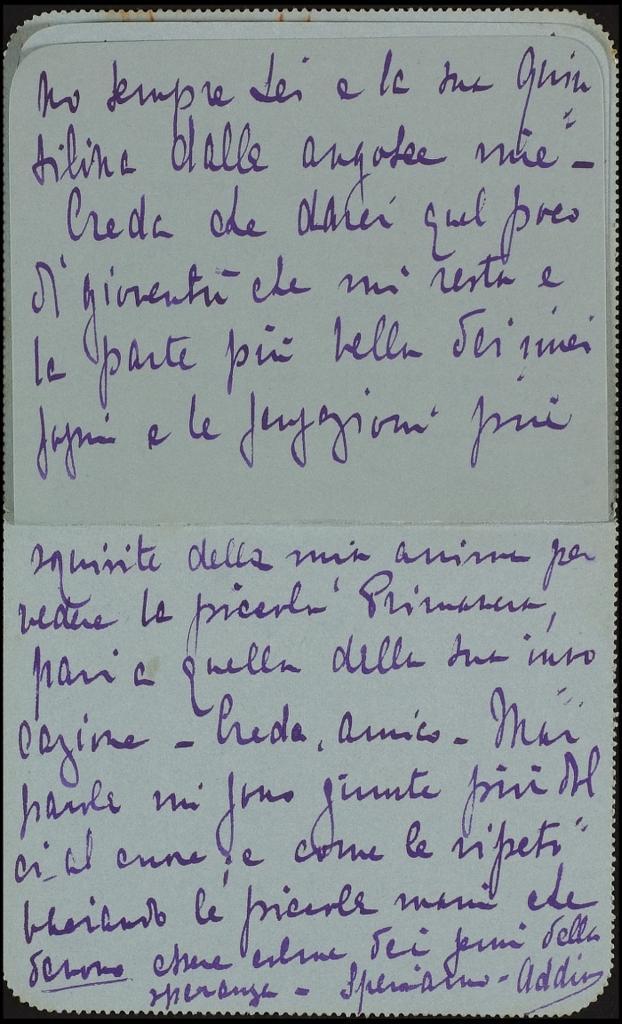 no sempre Lei e la sua Quin
tilina dalle angosce mie -
Creda che darei quel poco
di gioventù che mi resta e
la parte più bella dei miei
sogni e le sensazioni più
squisite della mia anima per
vedere la piccola Primavera,
pari a quella della sua invo
cazione - Creda, amico - Mai
parole mi sono giunte più dol
ci al cuore, e come le ripeto
baciando le piccole mani che
devono essere colme dei semi della
speranza - Speriamo - Addio